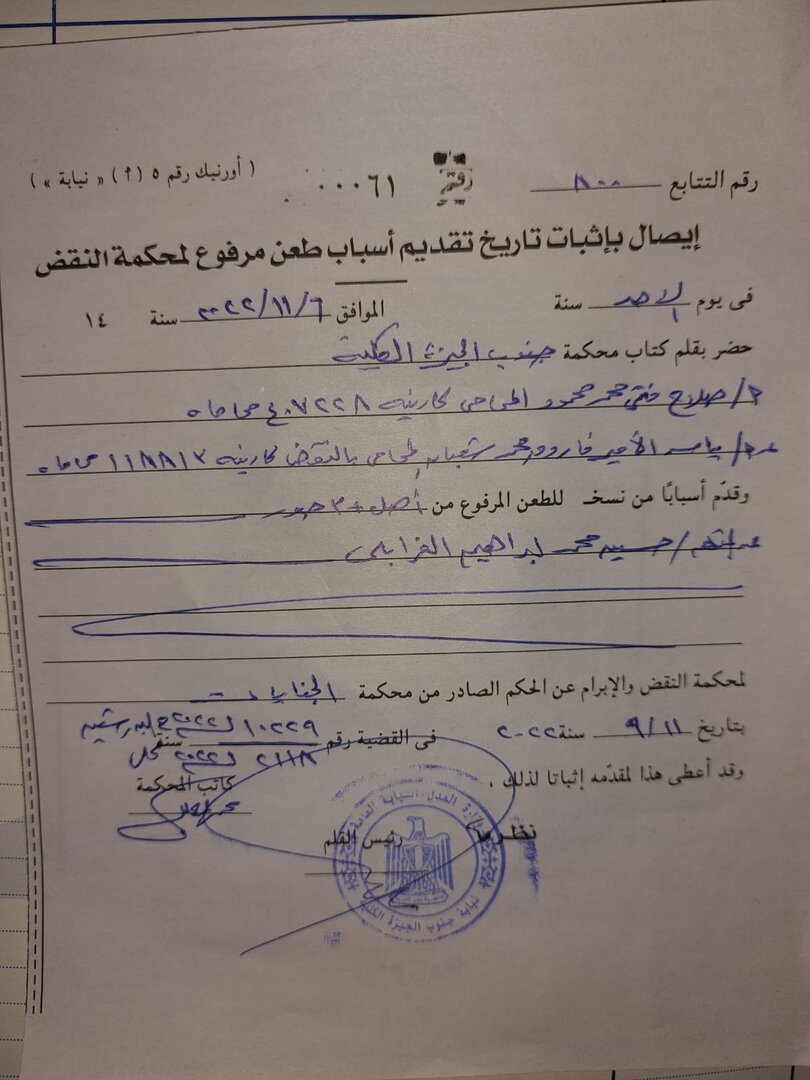 ( أورنيك رقم ٥ (٢) « نيابة » )
رقم التتابع ٨٠٠ رقم ٠٠٠٦١
إيصال بإثبات تاريخ تقديم أسباب طعن مرفوع لمحكمة النقض
فى يوم الاحد سنة الموافق ٢٠٢٢/١١/٦ سنة ١٤
حضر بقلم كتاب محكمة جنوب الجيزة الكلية
أ/ صلاح محمد محمود المحامى كارنيه ٤٠٧٢٢٨ محاماه
عن أ/ ياسر الأمير فاروق محمد شعبان المحامى بالنقض كارنيه ١١٨٨١٣ محاماه
وقدّم أسبابًا من نسخـ للطعن المرفوع من أصل + ٣ صور
عن المتهم / حسين محمد ابراهيم الغرابلى
لمحكمة النقض والإبرام عن الحكم الصادر من محكمة الجنايات
بتاريخ ٩/١١ سنة ٢٠٢٢ فى القضية رقم ١٠٢٢٩ سنة ٢٠٢٢
٢١١٨ ل ٢٠٢٢ كلى
وقد أعطى هذا لمقدّمه إثباتا لذلك ،
كاتب المحكمة
نظر رئيس القلم
وزارة العدل النيابة العامة
نيابة جنوب الجيزة الكلية